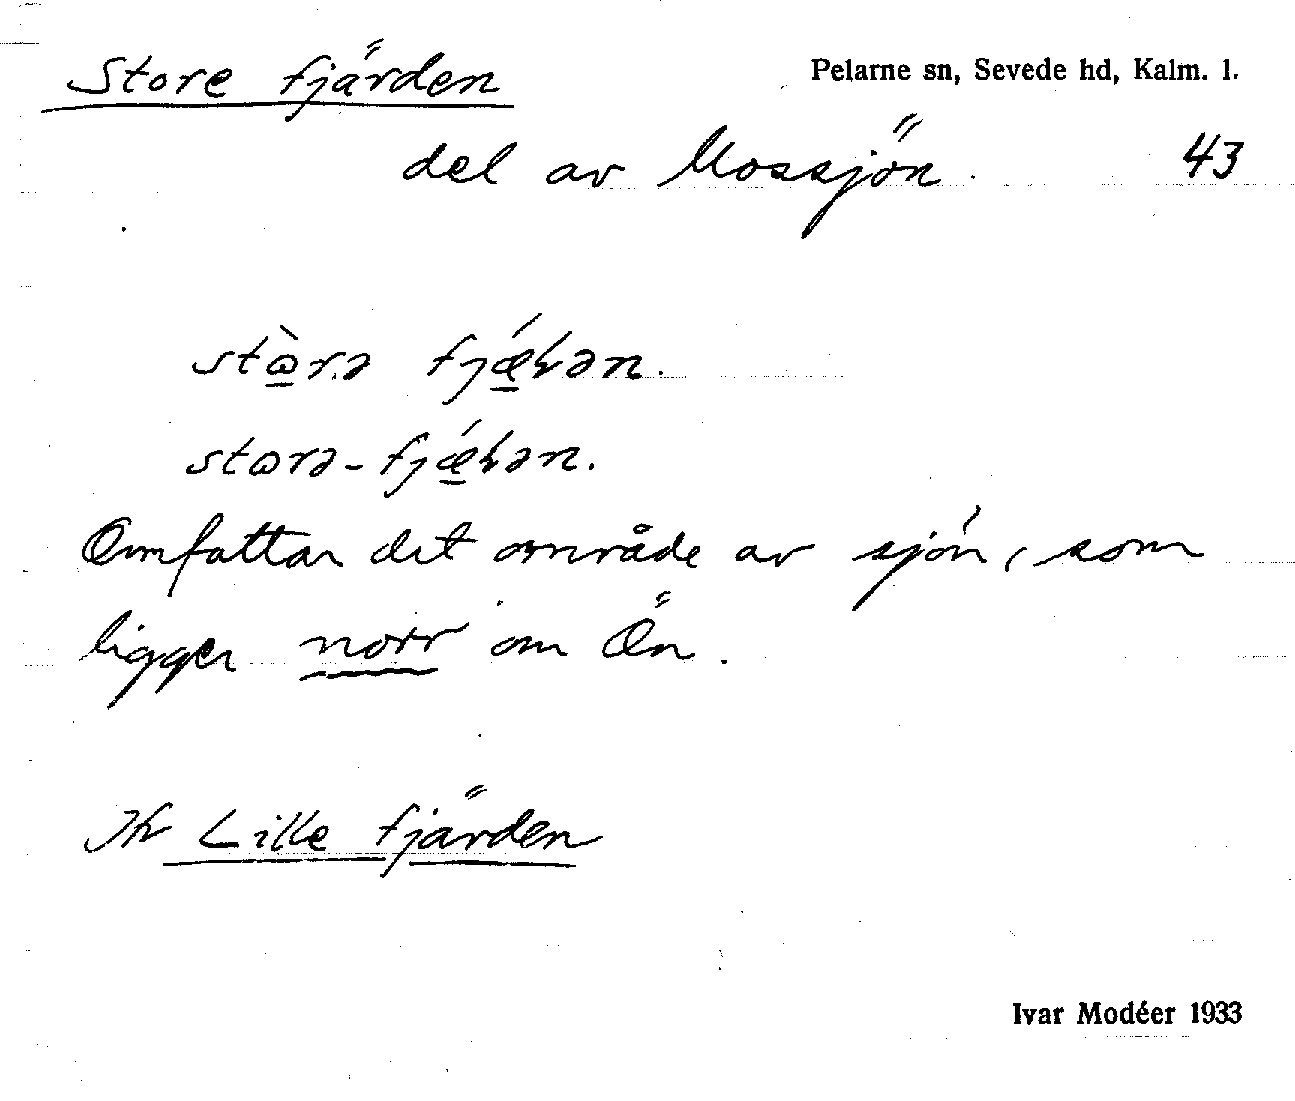 Store fjärden
Pelarne sn, Sevede hd, Kalm. l.
del av Mossjön. 43
stɷ̀rə fjǽɽən.
stɷrə-fjǽɽən.
Omfattar det område av sjön, som
ligger norr om Ön.
Jfr Lille fjärden
Ivar Modéer 1933